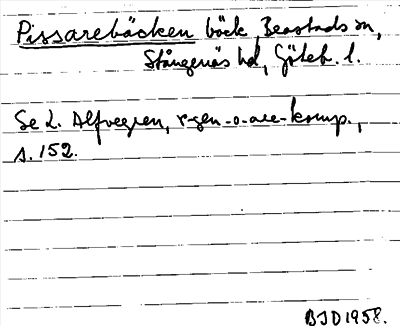 Pissarebäcken bäck, Brastads sn,
Stångenäs hd, Göteb. l.
Se L. Alfvegren, r-gen. o. are-komp.,
s. 152.
BJD 1958.